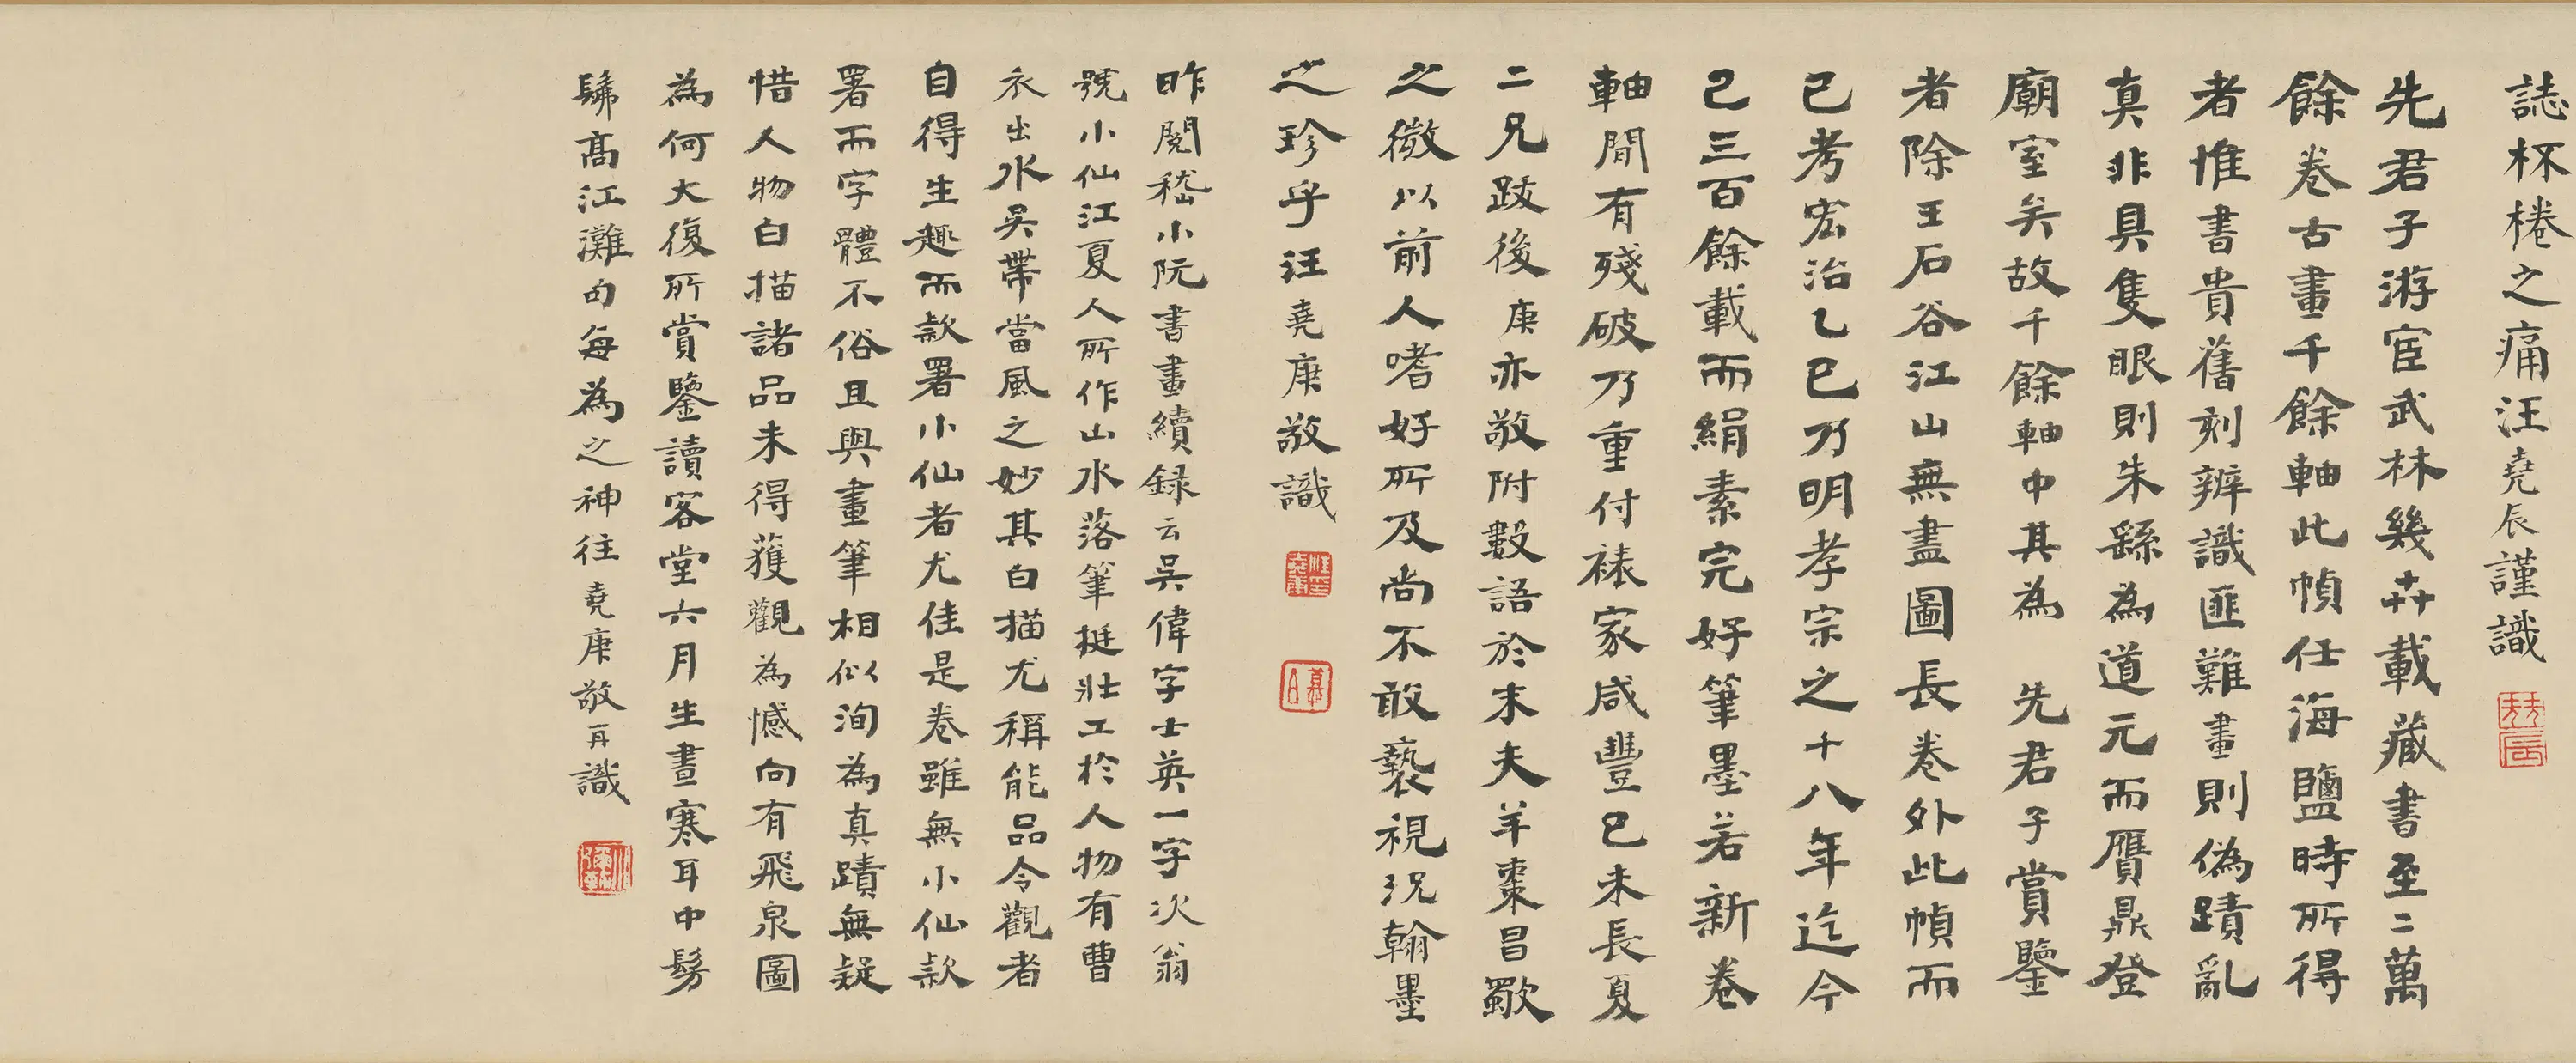 誌杯棬之痛汪堯辰謹識
先君子游宦武林幾卅載藏書至二萬
餘卷古畫千餘軸此幀任海鹽時所得
者惟書貴舊刻辨識匪難畫則偽蹟亂
真非具隻眼則朱繇為道元而贋鼎登
廟室矣故千餘軸中其為 先君子賞鑒
者除王石谷江山無盡圖長卷外此幀而
已考宏治乙巳乃明孝宗之十八年迄今
已三百餘載而絹素完好筆墨若新卷
軸間有殘破乃重付裱家咸豐己未長夏
二兄跋後庚亦敬附數語於末夫羊棗昌歜
之微以前人嗜好所及尚不敢褻視況翰墨
之珍乎汪堯庚敬識
昨閱嵇小阮書畫續録云吳偉字士英一字次翁
號小仙江夏人所作山水落筆挺壯工於人物有曹
衣出水吳帶當風之妙其白描尤稱能品令觀者
自得生趣而款署小仙者尤佳是卷雖無小仙款
署而字體不俗且與畫筆相似洵為真蹟無疑
惜人物白描諸品未得獲觀為憾向有飛泉圖
為何大復所賞鑒讀客堂六月生晝寒耳中髣
髴高江灘句每為之神往堯庚敬再識